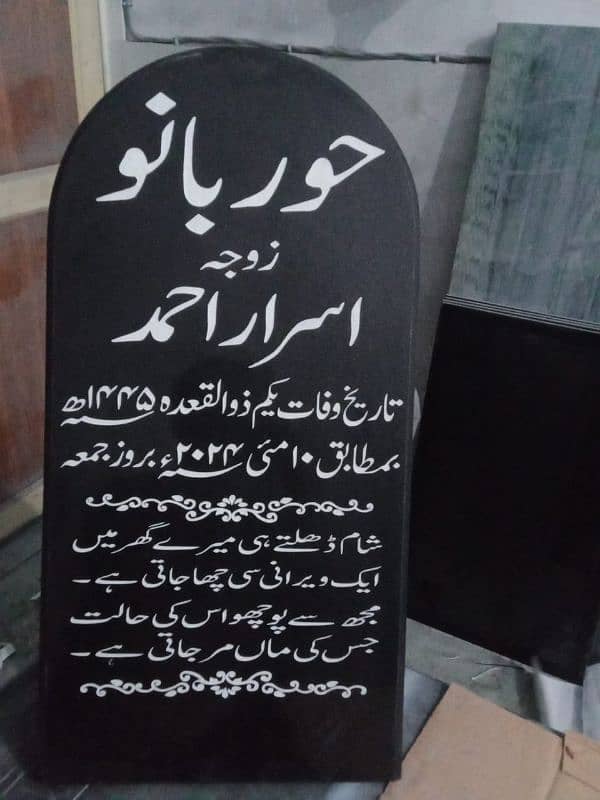 حور بانو
زوجہ
اسرار احمد
تاریخ وفات یکم ذوالقعدہ ۱۴۴۵ھ
بمطابق ۱۰ مئی ۲۰۲۴ء بروز جمعہ
شام ڈھلتے ہی میرے گھر میں
ایک ویرانی سی چھا جاتی ہے۔
مجھ سے پوچھو اس کی حالت
جس کی ماں مر جاتی ہے۔